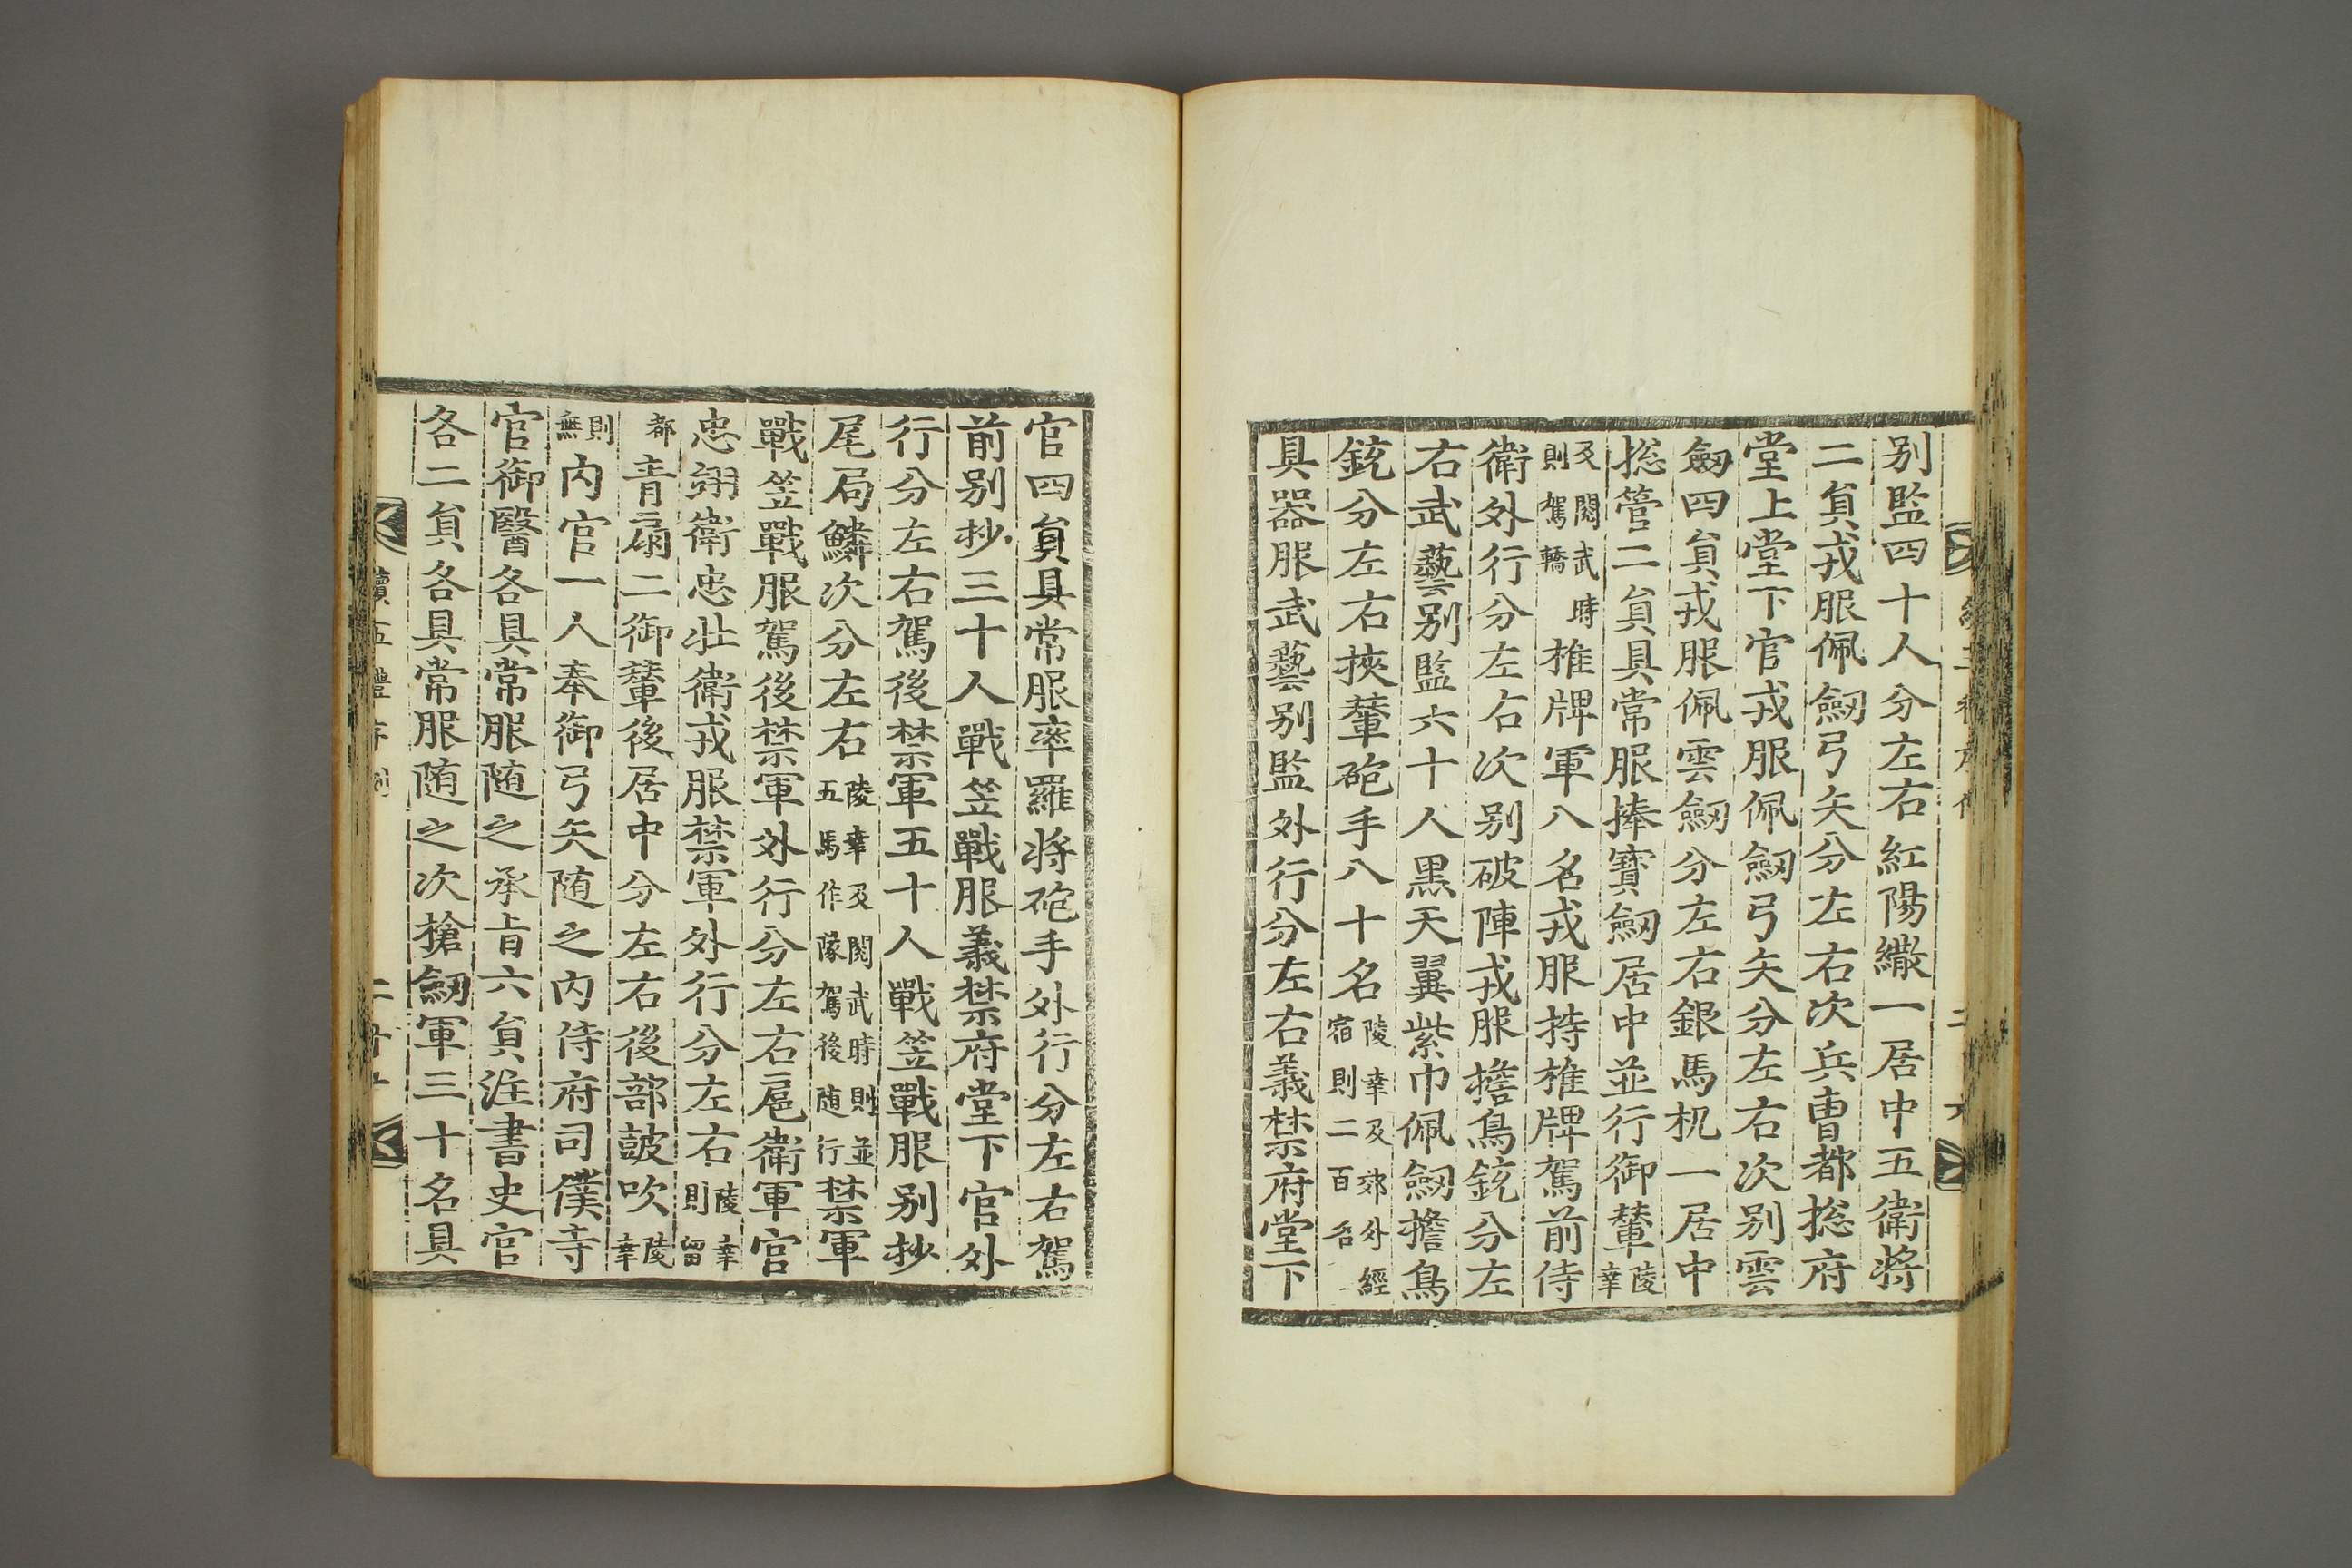 別監四十人分左右紅陽繖一居中五衛將
二貟戎服佩劒弓矢分左右次兵曹都摠府
堂上堂下官戎服佩劒弓矢分左右次別雲
劒四貟戎服佩雲劒分左右銀馬杌一居中
摠管二貟具常服捧寶劒居中並行御輦陵幸
及閱武時則駕轎推牌軍八名戎服持推牌駕前侍
衛外行分左右次別破陣戎服擔鳥銃分左
右武藝別監六十人黑天翼紫巾佩劒擔鳥
銃分左右挾輦砲手八十名陵幸及郊外經宿則二百名
具器服武藝別監外行分左右義禁府堂下
官四貟具常服率羅將砲手外行分左右駕
前別抄三十人戰笠戰服義禁府堂下官外
行分左右駕後禁軍五十人戰笠戰服別抄
尾局鱗次分左右陵幸及閱武時則並五馬作隊駕後随行禁軍
戰笠戰服駕後禁軍外行分左右扈衛軍官
忠翊衛忠壯衛戎服禁軍外行分左右陵幸則留
都青扇二御輦後居中分左右後部皷吹陵幸
則無内官一人奉御弓矢随之内侍府司僕寺
官御醫各具常服随之承旨六貟注書史官
各二貟各具常服随之次槍劒軍三十名具
續五禮序例